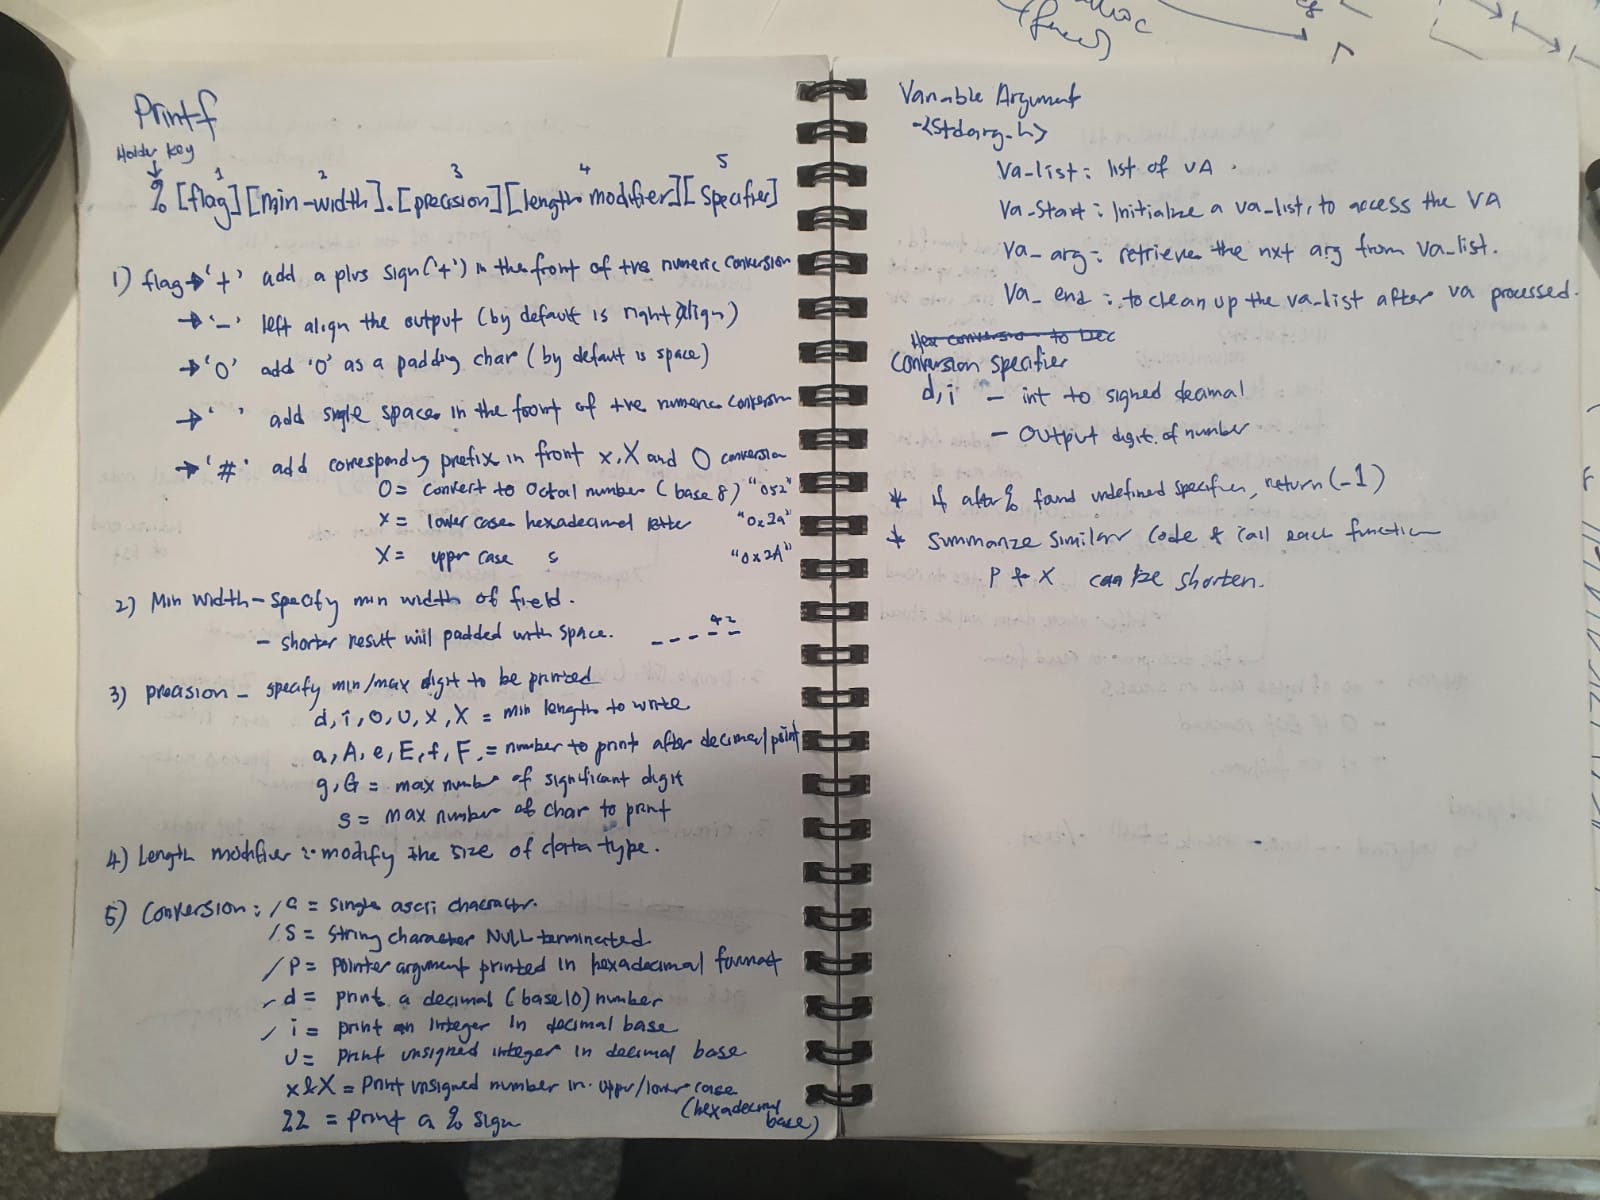 Printf
Holder key
1 2 3 4 5
% [flag][min-width].[precision][length modifier][specifier]
1) flag → '+' add a plus sign ('+') in the front of +ve numeric conversion
→ '-' left align the output (by default is right align)
→ '0' add '0' as a padding char (by default is space)
→ ' ' add single space in the front of +ve numeric conversion
→ '#' add corresponding prefix in front x, X and O conversion
O = convert to Octal number (base 8) "052"
x = lower case hexadecimal letter "0x2a"
X = uppr case s "0x2A"
2) Min width - specify min width of field.
- shorter result will padded with space. _ _ _ 42
3) precision - specify min/max digit to be printed
d, i, o, u, x, X = min length to write
a, A, e, E, f, F, = number to print after decimal point
g, G = max number of significant digit
s = max number of char to print
4) Length modifier :- modify the size of data type.
5) Conversion : / c = single ascii character.
/ s = string character NULL terminated
/ p = pointer argument printed in hexadecimal format
/ d = print a decimal (base 10) number
/ i = print an integer in decimal base
u = print unsigned integer in decimal base
x & X = Print unsigned number in uppr/lower case
(hexadecimal
base)
%% = print a % sign
Variable Argument
-<stdarg.h>
Va-list : list of VA .
Va-start : Initialize a va_list, to access the VA
Va_ arg : retrieve the nxt arg from va_list.
Va_ end : to clean up the va_list after va processed.
Hex conversio to Dec
Conversion specifier
d, i - int to signed decimal
- OUtput digit of number
* if after % found undefined specifier, return (-1)
* Summarize similar code & call each function
P & X can be shorten.
malloc
(free)